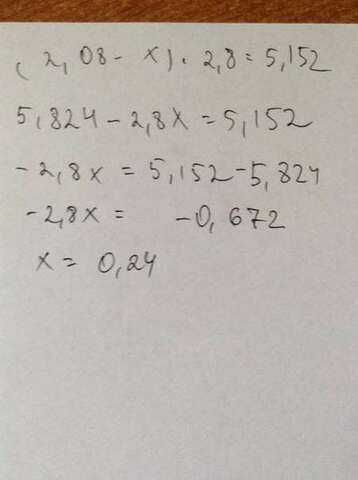 (2,08 - x) · 2,8 = 5,152
5,824 - 2,8x = 5,152
- 2,8x = 5,152 - 5,824
- 2,8x = - 0,672
x = 0,24